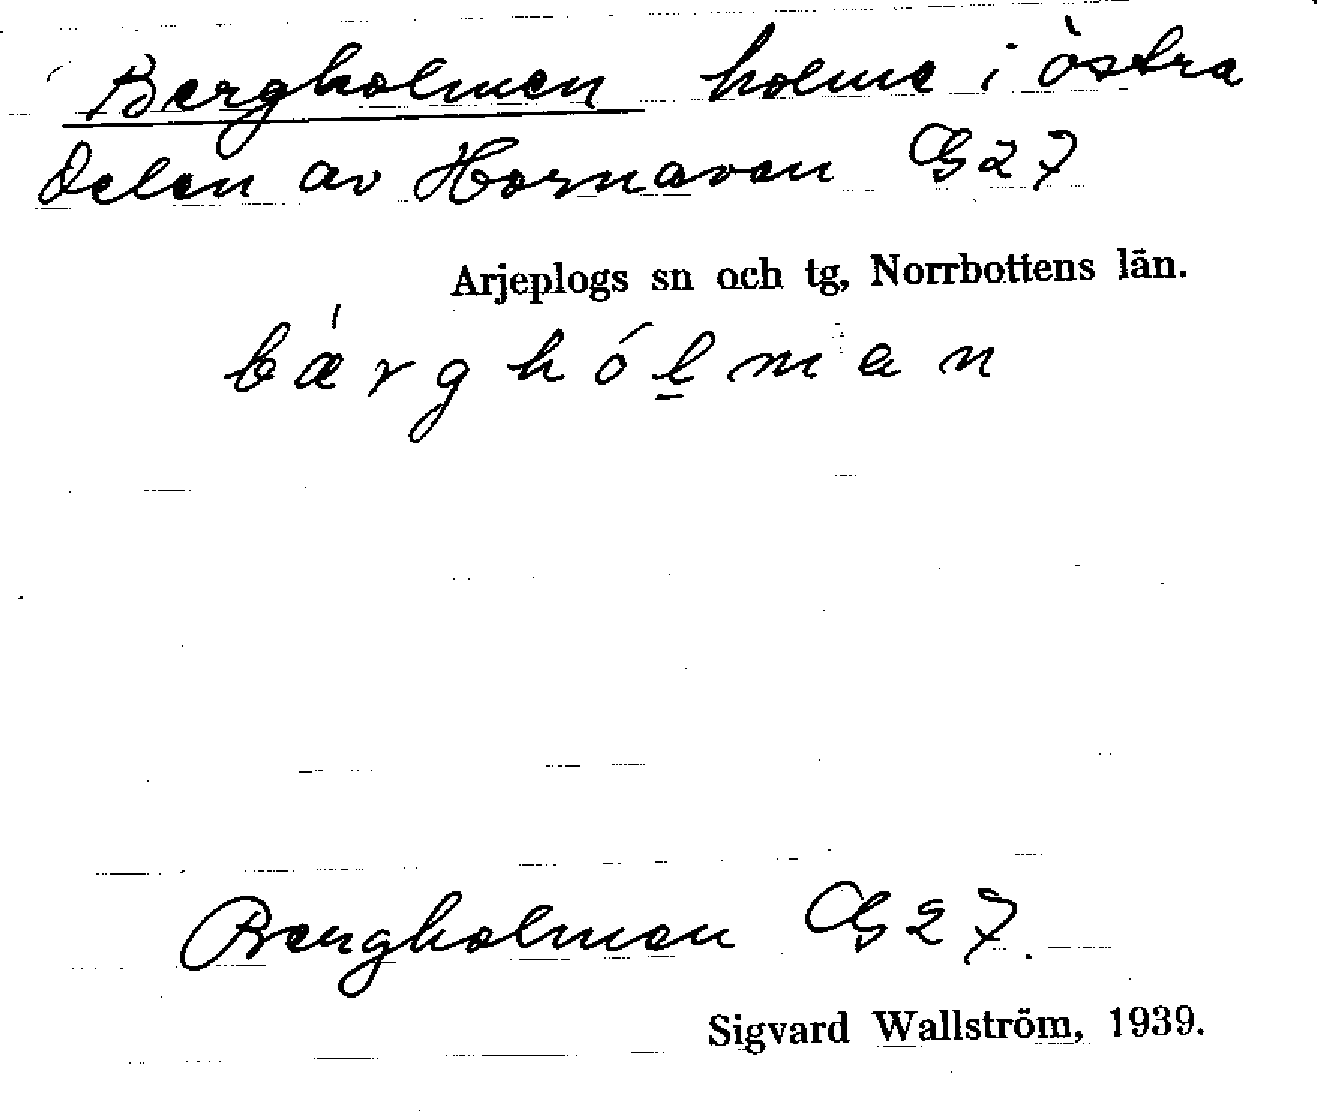 Bergholmen holme i östra
delen av Hornavan G27
Arjeplogs sn och tg, Norrbottens län.
bǽrghólman
Bergholmen G27.
Sigvard Wallström, 1939.